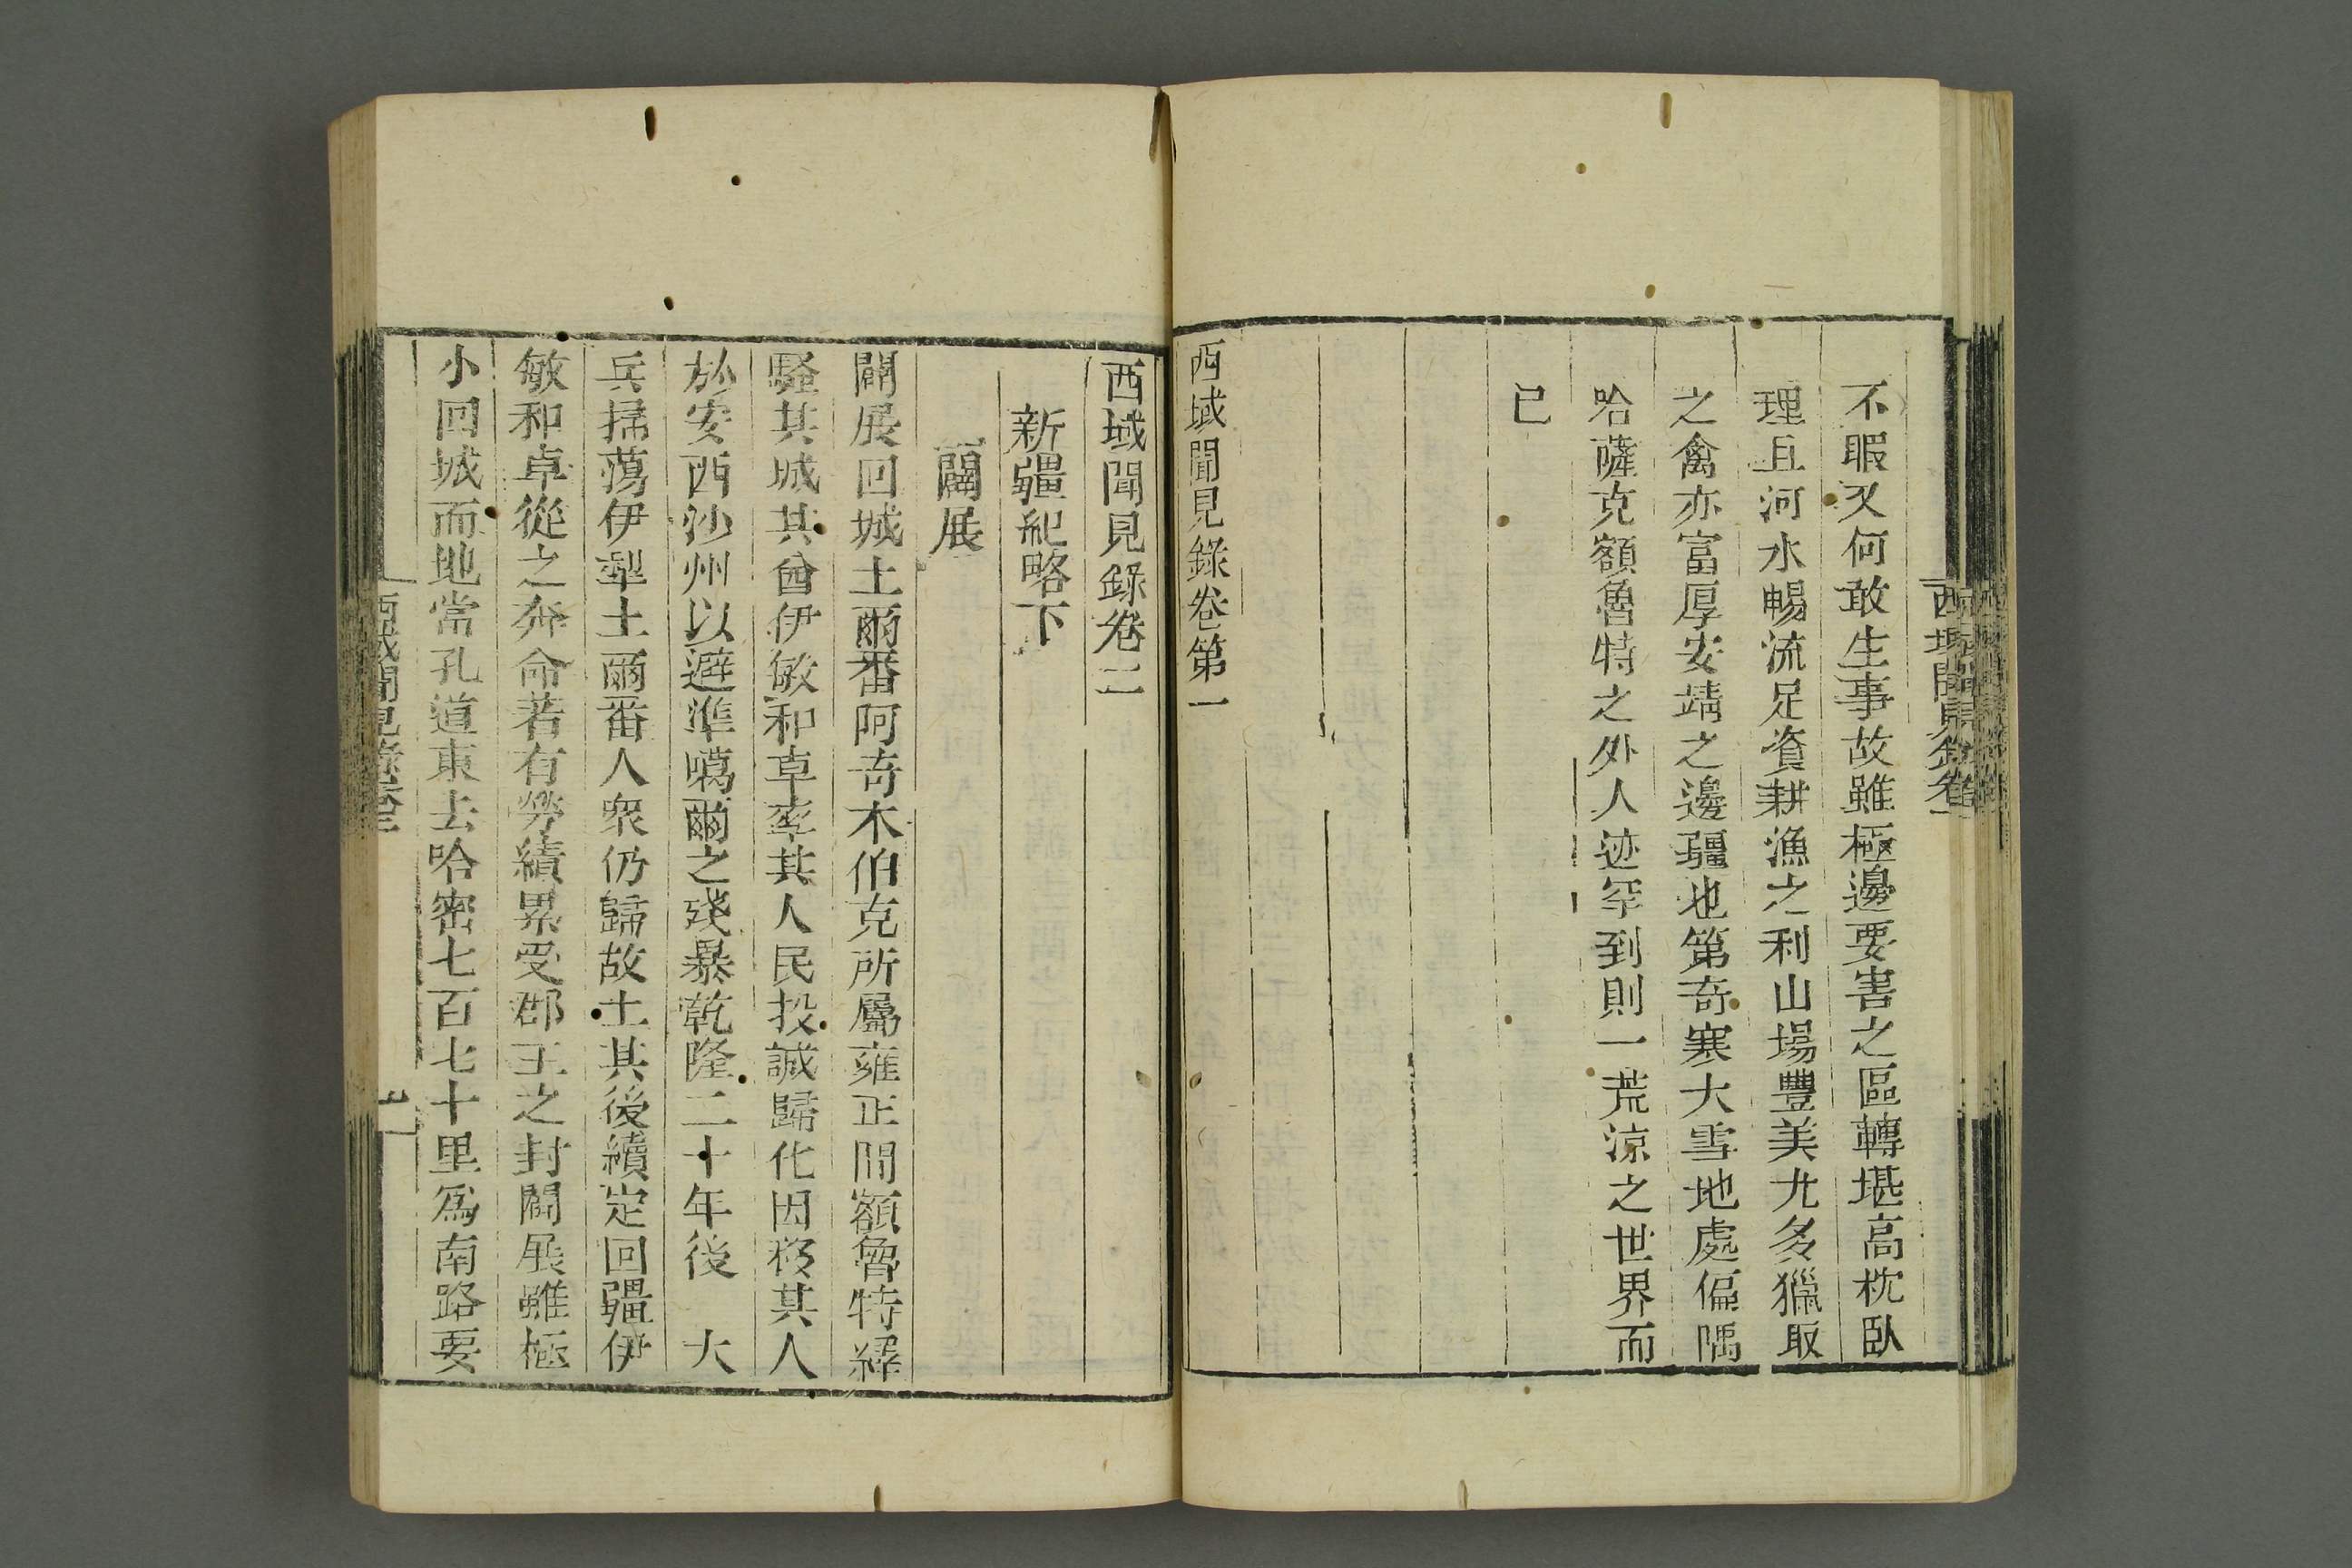 西域聞見錄卷一
不暇又何敢生事故雖極邊要害之區轉堪高枕臥
理且河水暢流足資耕漁之利山場豐美尤多獵取
之禽亦富厚安靖之邊疆也第奇寒大雪地處偏隅
哈薩克額魯特之外人迹罕到則一荒涼之世界而
已
西域聞見錄卷第一
西域聞見錄卷二
新疆紀略下
闢展
闢展回城土爾番阿奇木伯克所屬雍正間額魯特繹
騷其城其酋伊敏和卓率其人民投誠歸化因移其人
於安西沙州以避準噶爾之殘暴乾隆二十年後　大
兵掃蕩伊犁土爾番人衆仍歸故土其後續定回疆伊
敏和卓從之奔命著有勞績累受郡王之封闢展雖極
小回城而地當孔道東去哈密七百七十里爲南路要
西域聞見錄卷二